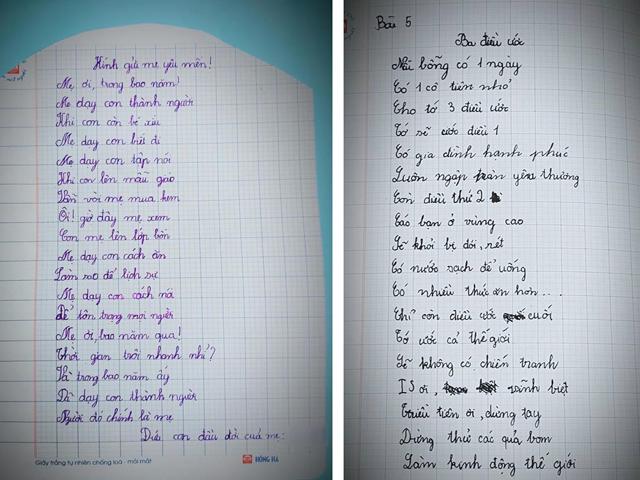 Kính gửi mẹ yêu mến!
Mẹ ơi, trong bao năm!
Mẹ dạy con thành người
Khi con còn bé xíu
Mẹ dạy con biết đi
Mẹ dạy con tập nói
Khi con lên mẫu giáo
Vời mẹ mua kem
Ôi! giờ đây mẹ xem
Con mẹ lên lớp bốn
Mẹ dạy con cách ăn
Làm sao để lịch sự
Mẹ dạy con cách nói
Để tôn trọng mọi người
Mẹ ơi, bao năm qua!
Thời gian trôi nhanh nhỉ?
Và trong bao năm ấy
Đã dạy con thành người
Người đó chính là mẹ
con đầu đời của mẹ:
Giấy trắng tự nhiên chống loá - mỏi mắt
HỒNG HÀ
Bài 5
Ba điều ước
Nếu bỗng có 1 ngày
Có 1 cô tiên nhỏ
Cho tớ 3 điều ước
Tớ sẽ ước điều 1
Có gia đình hạnh phúc
Luôn ngập tràn yêu thương
Còn điều thứ 2
Các bạn ở vùng cao
Sẽ khỏi bị đói, rét
Có nước sạch để uống
Có nhiều thức ăn hơn....
Chỉ còn điều ước cuối
Tớ ước cả thế giới
Sẽ không có chiến tranh
IS ơi, vĩnh biệt
Triều tiên ơi, dừng tay
Dừng thử các quả bom
Làm kinh động thế giới